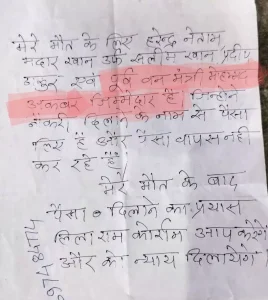 मेरे मौत के लिए हरेन्द्र नेताम
मदार खान उर्फ सलीम खान, प्रदीप
ठाकुर एवं पूर्व वन मंत्री मोहम्मद
अकबर जिम्मेदार हैं जिन्होने
नौकरी दिलाने के नाम से पैसा
लिए हैं और पैसा वापस नही
कर रहे हैं
मेरे मौत के बाद
पैसा दिलाने का प्रयास
जिला राम आप करेंगे
और न्याय दिलायेंगे